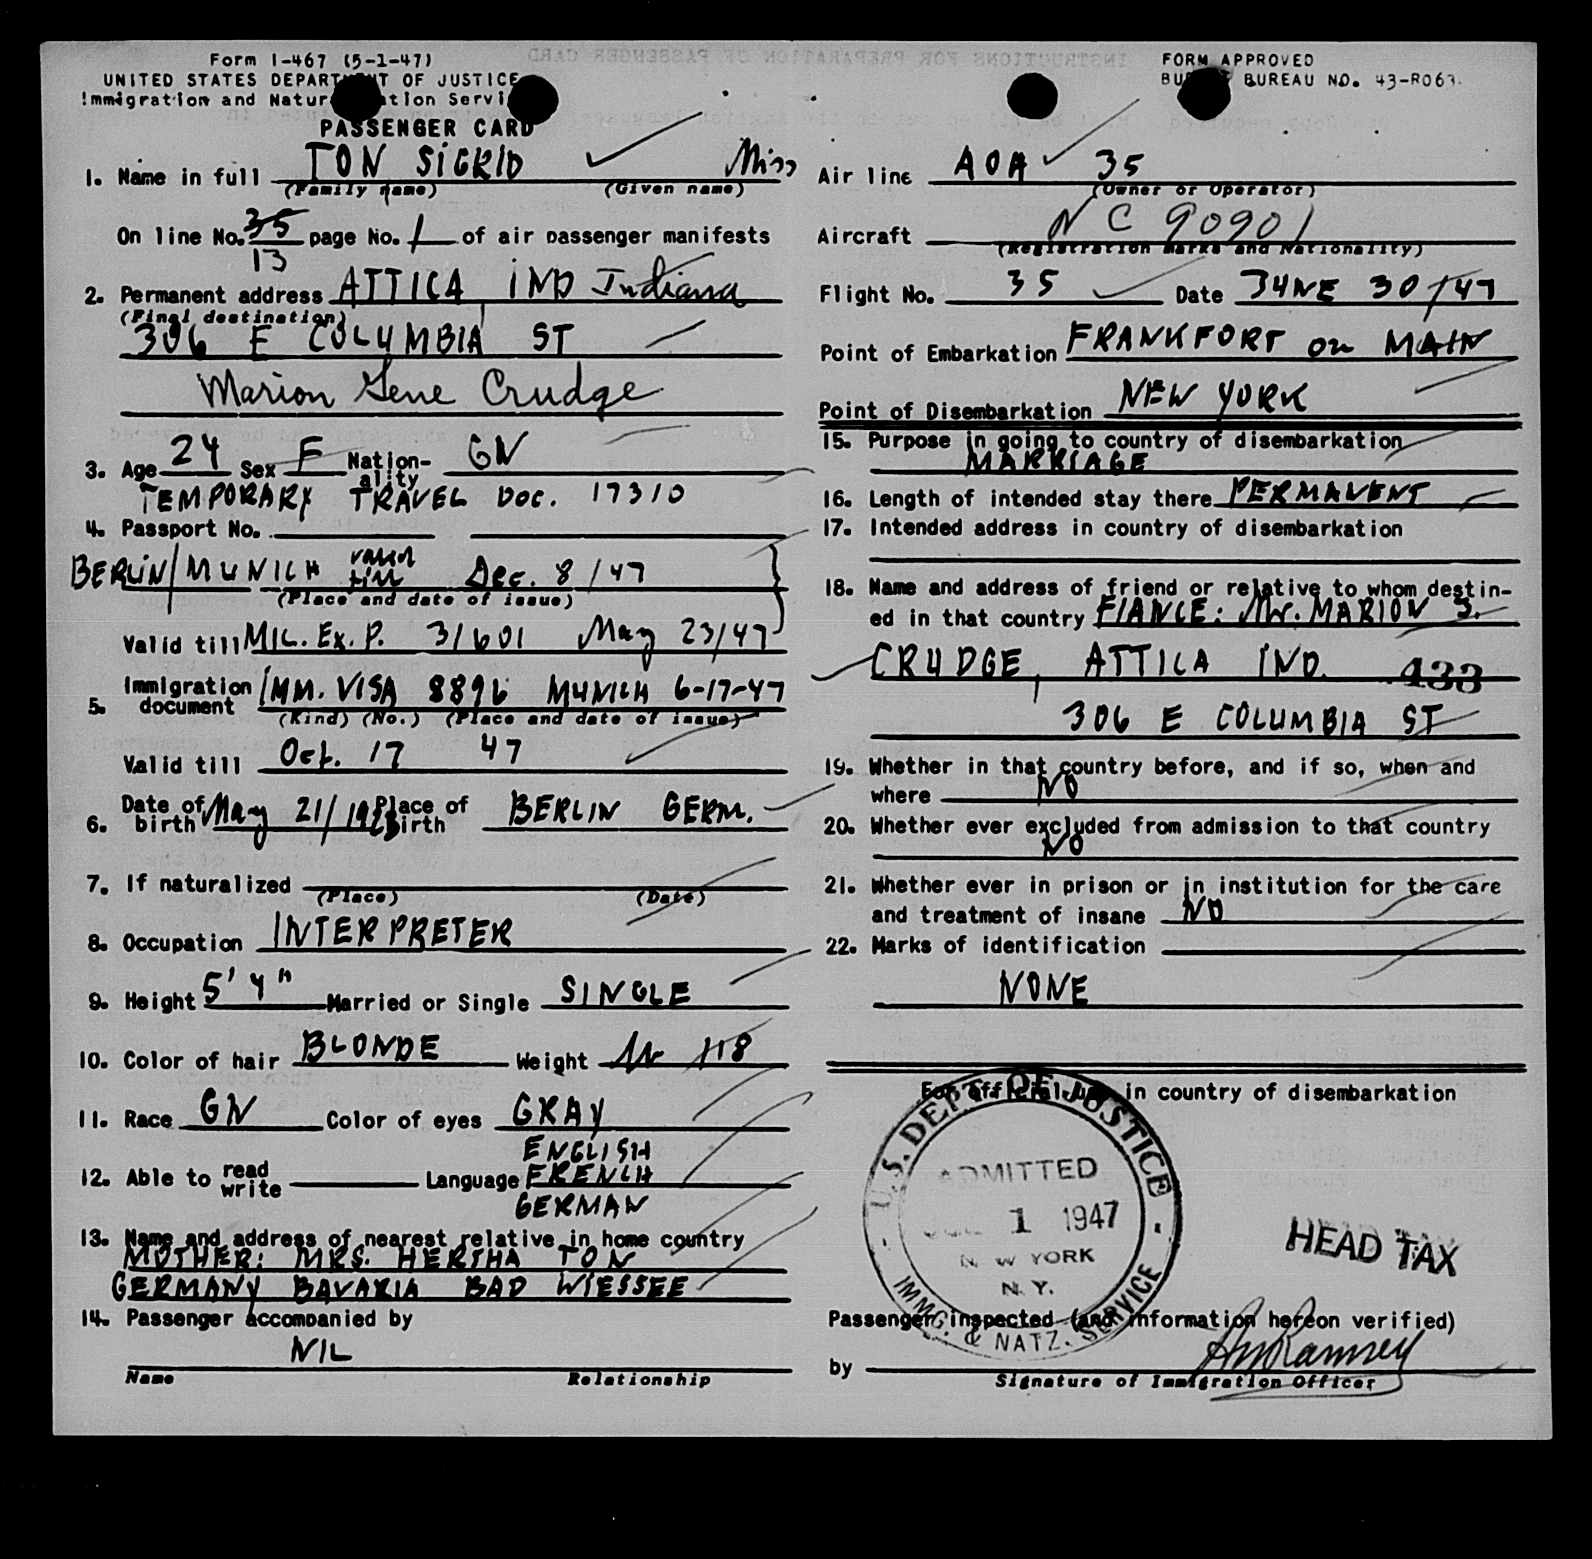 Form I-467 (5-1-47)
UNITED STATES DEPARTMENT OF JUSTICE
Immigration and Naturalization Service
PASSENGER CARD
FORM APPROVED
BUDGET BUREAU NO. 43-R063.
1. Name in full TON SIGRID Miss
(Family name) (Given name)
On line No. 35 page No. 1 of air passenger manifests
13
2. Permanent address ATTICA, IND Indiana
(Final destination)
306 E COLUMBIA ST
Marion Gene Crudge
3. Age 24 Sex F Nation-ality GN
TEMPORARY TRAVEL DOC. 17310
4. Passport No.
BERLIN/MUNICH valid till Dec. 8/47
(Place and date of issue)
Valid till MIL. Ex. P. 31601 May 23/47
5. Immigration document IMM. VISA 8896 MUNICH 6-17-47
(Kind) (No.) (Place and date of issue)
Valid till Oct. 17 47
6. Date of birth May 21/1923 Place of birth BERLIN GERM.
7. If naturalized
(Place) (Date)
8. Occupation INTERPRETER
9. Height 5' 4" Married or Single SINGLE
10. Color of hair BLONDE Weight 118
11. Race GN Color of eyes GRAY
ENGLISH
12. Able to read write Language FRENCH
GERMAN
13. Name and address of nearest relative in home country
MOTHER: MRS. HERTHA TON
GERMANY BAVARIA BAD WIESSEE
14. Passenger accompanied by
NIL
Name Relationship
Air line AOA 35
(Owner or Operator)
Aircraft NC 90901
(Registration marks and Nationality)
Flight No. 35 Date JUNE 30/47
Point of Embarkation FRANKFORT on MAIN
Point of Disembarkation NEW YORK
15. Purpose in going to country of disembarkation
MARRIAGE
16. Length of intended stay there PERMANENT
17. Intended address in country of disembarkation
18. Name and address of friend or relative to whom destin-
ed in that country FIANCE: Mr. MARION J.
CRUDGE, ATTICA IND. 433
306 E COLUMBIA ST
19. Whether in that country before, and if so, when and
where NO
20. Whether ever excluded from admission to that country
NO
21. Whether ever in prison or in institution for the care
and treatment of insane NO
22. Marks of identification
NONE
For official use in country of disembarkation
U.S. DEPT. OF JUSTICE
ADMITTED
JUL 1 1947
NEW YORK
N.Y.
IMMG. & NATZ. SERVICE
HEAD TAX
Passenger inspected (and information hereon verified)
by
Signature of Immigration Officer